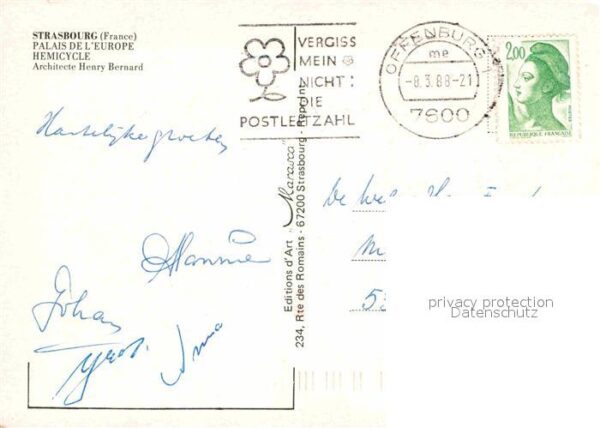 STRASBOURG (France)
PALAIS DE L'EUROPE
HEMICYCLE
Architecte Henry Bernard
VERGISS
MEIN
NICHT:
DIE
POSTLEITZAHL
OFFENBURG 1
me
-8.3.88-21
7600
2,00
REPUBLIQUE FRANCAISE
Hartelijke groeten
Johan
Editions d'Art "Marasco"
234, Rte des Romains - 67200 Strasbourg - Repr. Int.
De Wel
M
53
privacy protection
Datenschutz